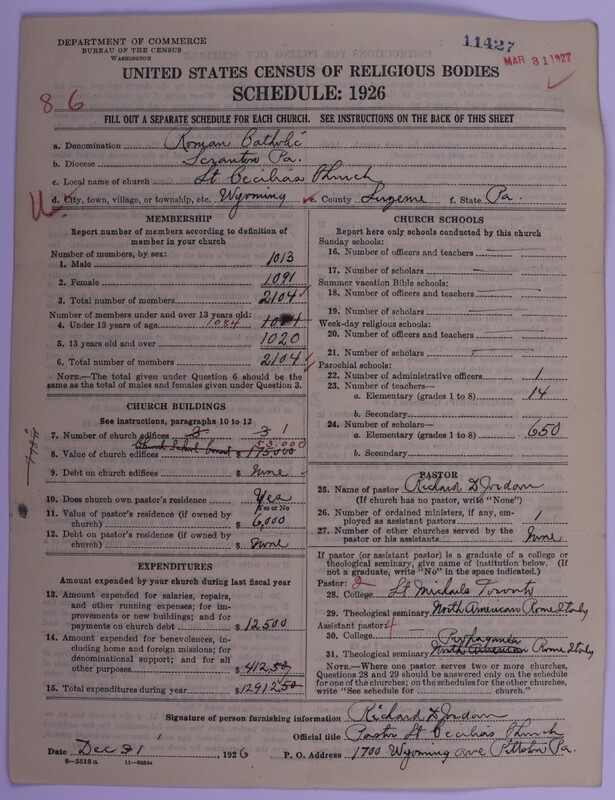 DEPARTMENT OF COMMERCE
BUREAU OF THE CENSUS
WASHINGTON
11427
MAR 31 1927
UNITED STATES CENSUS OF RELIGIOUS BODIES
SCHEDULE: 1926
8 6
FILL OUT A SEPARATE SCHEDULE FOR EACH CHURCH. SEE INSTRUCTIONS ON THE BACK OF THIS SHEET
a. Denomination Roman Catholic
b. Diocese Scranton Pa.
c. Local name of church St Cecilia's Church
d. City, town, village, or township, etc. Wyoming e. County Luzerne f. State Pa.
MEMBERSHIP
Report number of members according to definition of
member in your church
Number of members, by sex:
1. Male 1013
2. Female 1091
3. Total number of members 2104
Number of members under and over 13 years old:
4. Under 13 years of age 1084
5. 13 years old and over 1020
6. Total number of members 2104
NOTE.—The total given under Question 6 should be
the same as the total of males and females given under Question 3.
CHURCH BUILDINGS
See instructions, paragraphs 10 to 12
7. Number of church edifices 3 3 1
Church School Convent 53,000
8. Value of church edifices $ 175,000
9. Debt on church edifices $ None
10. Does church own pastor's residence? Yes
Yes or No
11. Value of pastor's residence (if owned by
church) $ 6,000
12. Debt on pastor's residence (if owned by
church) $ None
EXPENDITURES
Amount expended by your church during last fiscal year
13. Amount expended for salaries, repairs,
and other running expenses; for im-
provements or new buildings; and for
payments on church debt $ 12500
14. Amount expended for benevolences, in-
cluding home and foreign missions; for
denominational support; and for all
other purposes $ 412.50
15. Total expenditures during year $ 12912.50
CHURCH SCHOOLS
Report here only schools conducted by this church
Sunday schools:
16. Number of officers and teachers
17. Number of scholars
Summer vacation Bible schools:
18. Number of officers and teachers
19. Number of scholars
Week-day religious schools:
20. Number of officers and teachers
21. Number of scholars
Parochial schools:
22. Number of administrative officers 1
23. Number of teachers—
a. Elementary (grades 1 to 8) 14
b. Secondary
24. Number of scholars—
a. Elementary (grades 1 to 8) 650
b. Secondary
PASTOR
25. Name of pastor Richard D Jordan
(If church has no pastor, write "None")
26. Number of ordained ministers, if any, em-
ployed as assistant pastors 1
27. Number of other churches served by the
pastor or his assistants None
If pastor (or assistant pastor) is a graduate of a college or
theological seminary, give name of institution below. (If
not a graduate, write "No" in the space indicated.)
Pastor: 2
28. College St Michaels Toronto
29. Theological seminary North American Rome Italy
Assistant pastor: 4
30. College
Propaganda
31. Theological seminary North American Rome Italy
NOTE.—Where one pastor serves two or more churches,
Questions 28 and 29 should be answered only on the schedule
for one of the churches; on the schedules for the other churches,
write "See schedule for church."
Signature of person furnishing information Richard D Jordan
Official title Pastor St Cecilias Church
Date Dec 21, 1926 P. O. Address 1700 Wyoming ave Pittston Pa.
8—5518a